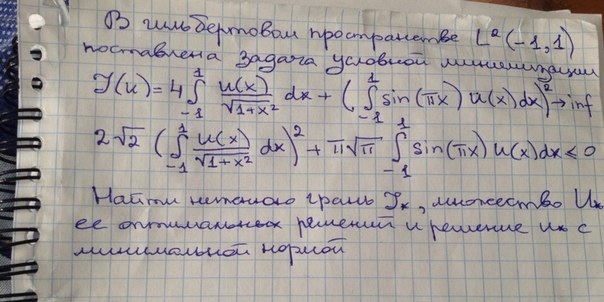 В гильбертовом пространстве L²(-1,1)
поставлена задача условной минимизации
J(u) = 4 ∫₋₁¹ u(x)/√(1+x²) dx + (∫₋₁¹ sin(πx) u(x)dx)² → inf
2√2 (∫₋₁¹ u(x)/√(1+x²) dx)² + π√π ∫₋₁¹ sin(πx) u(x)dx ≤ 0
Найти нижнюю грань J*, множество U*
ее оптимальных решений и решение u* с
минимальной нормой